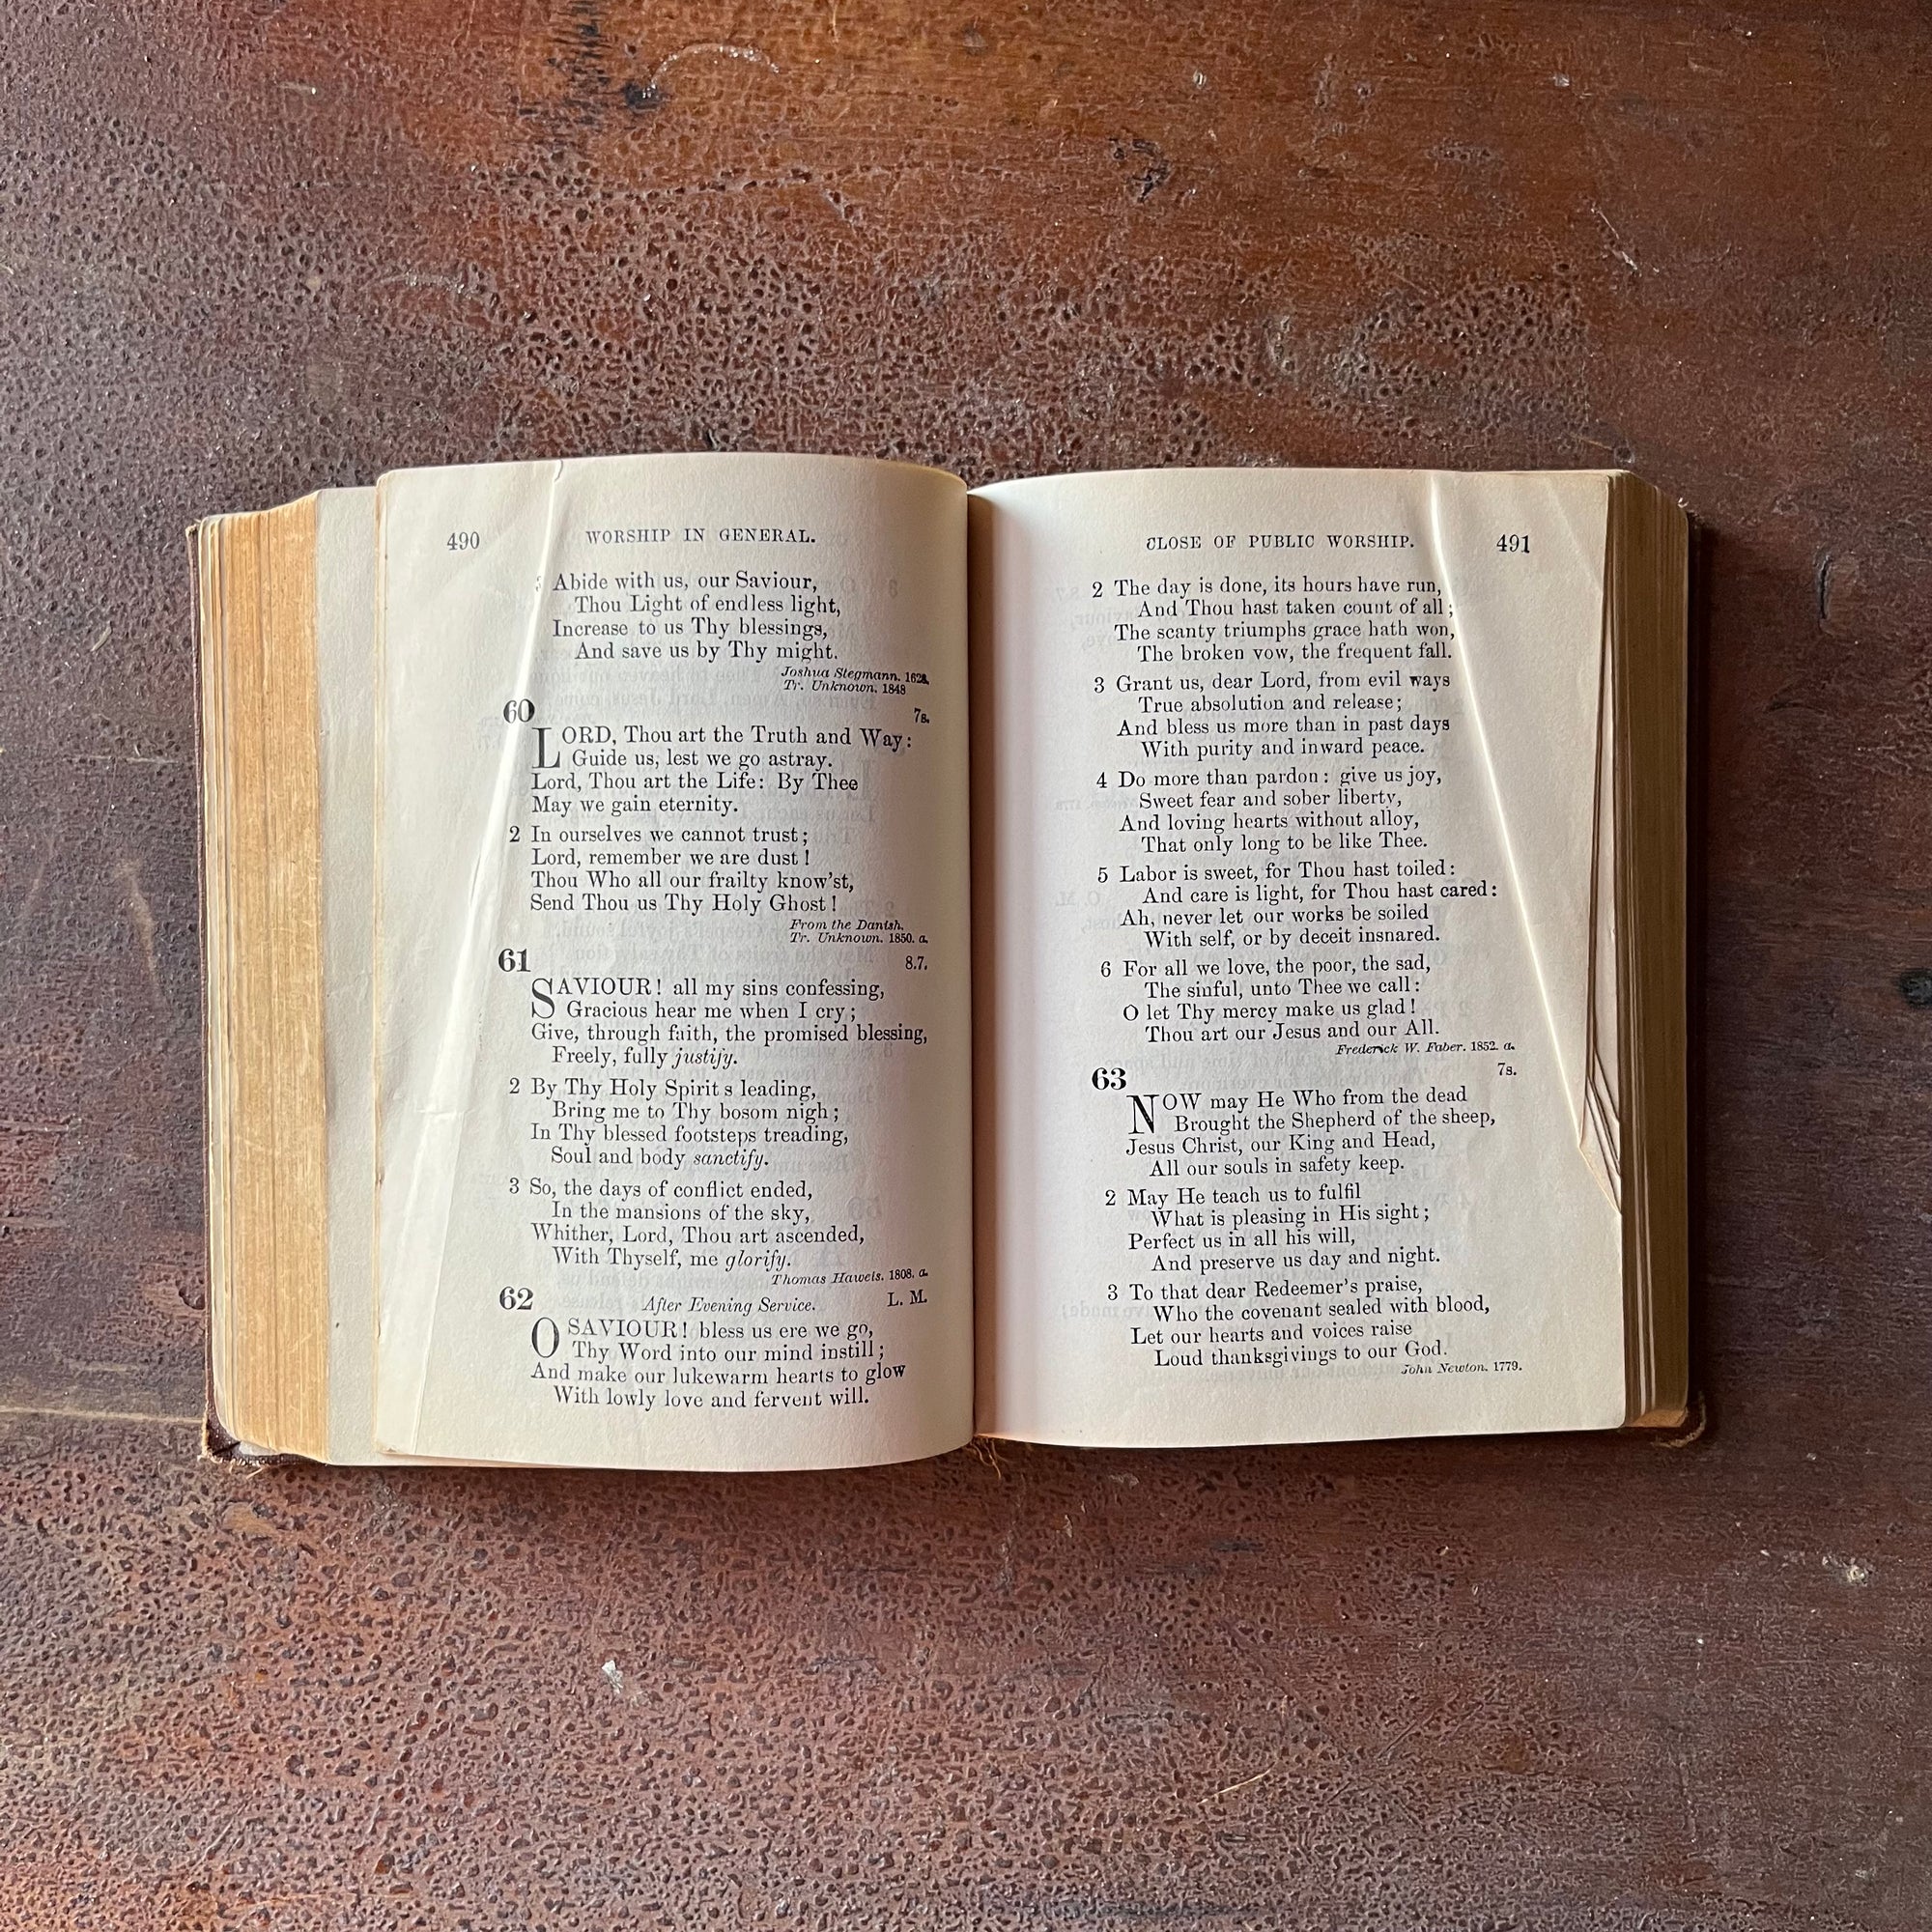 490 WORSHIP IN GENERAL.
3 Abide with us, our Saviour,
Thou Light of endless light,
Increase to us Thy blessings,
And save us by Thy might.
Joshua Stegmann. 1628.
Tr. Unknown. 1848
60 7s.
LORD, Thou art the Truth and Way:
Guide us, lest we go astray.
Lord, Thou art the Life: By Thee
May we gain eternity.
2 In ourselves we cannot trust;
Lord, remember we are dust!
Thou Who all our frailty know'st,
Send Thou us Thy Holy Ghost!
From the Danish.
Tr. Unknown. 1850. a.
61 8.7.
SAVIOUR! all my sins confessing,
Gracious hear me when I cry;
Give, through faith, the promised blessing,
Freely, fully justify.
2 By Thy Holy Spirit s leading,
Bring me to Thy bosom nigh;
In Thy blessed footsteps treading,
Soul and body sanctify.
3 So, the days of conflict ended,
In the mansions of the sky,
Whither, Lord, Thou art ascended,
With Thyself, me glorify.
Thomas Haweis. 1808. a.
62 After Evening Service. L. M.
O SAVIOUR! bless us ere we go,
Thy Word into our mind instill;
And make our lukewarm hearts to glow
With lowly love and fervent will.
CLOSE OF PUBLIC WORSHIP. 491
2 The day is done, its hours have run,
And Thou hast taken count of all;
The scanty triumphs grace hath won,
The broken vow, the frequent fall.
3 Grant us, dear Lord, from evil ways
True absolution and release;
And bless us more than in past days
With purity and inward peace.
4 Do more than pardon: give us joy,
Sweet fear and sober liberty,
And loving hearts without alloy,
That only long to be like Thee.
5 Labor is sweet, for Thou hast toiled:
And care is light, for Thou hast cared:
Ah, never let our works be soiled
With self, or by deceit insnared.
6 For all we love, the poor, the sad,
The sinful, unto Thee we call:
O let Thy mercy make us glad!
Thou art our Jesus and our All.
Frederick W. Faber. 1852. a.
63 7s.
NOW may He Who from the dead
Brought the Shepherd of the sheep,
Jesus Christ, our King and Head,
All our souls in safety keep.
2 May He teach us to fulfil
What is pleasing in His sight;
Perfect us in all his will,
And preserve us day and night.
3 To that dear Redeemer's praise,
Who the covenant sealed with blood,
Let our hearts and voices raise
Loud thanksgivings to our God.
John Newton. 1779.